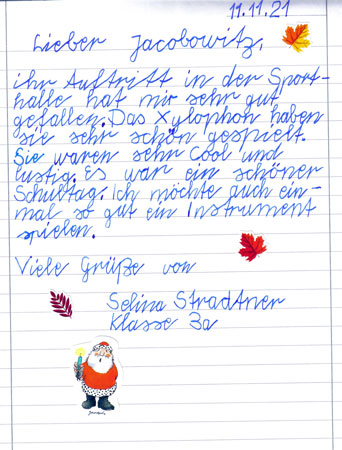 11.11.21
Lieber Jacobowitz,
ihr Auftritt in der Sport-
halle hat mir sehr gut
gefallen. Das Xylophon haben
sie sehr schön gespielt.
Sie waren sehr cool und
lustig. Es war ein schöner
Schultag. Ich möchte auch ein-
mal so gut ein Instrument
spielen.
Viele Grüße von
Selina Stradtner
Klasse 3a